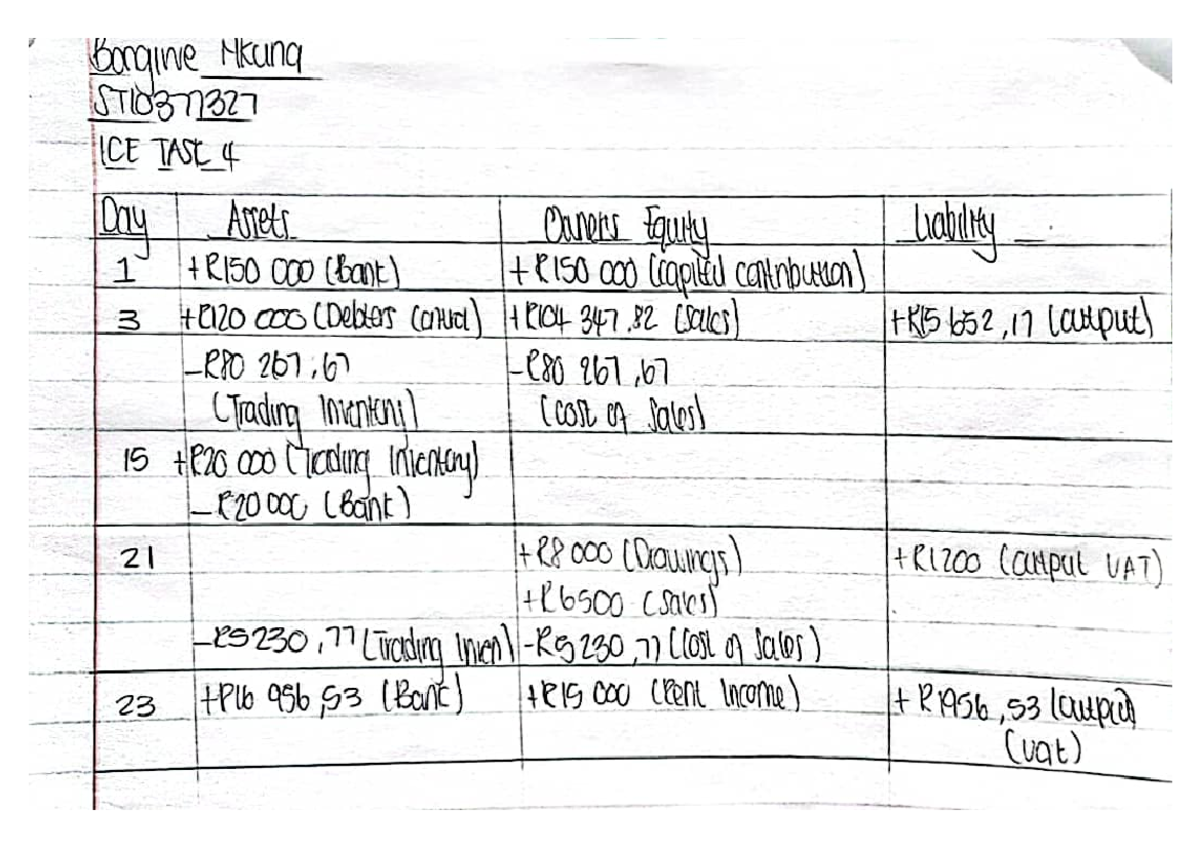 Bongiwe Mkuna
ST10377327
ICE TASK 4
Day Assets Owners Equity Liability
1 +R150 000 (Bank) +R150 000 (capital contribution)
3 +R120 000 (Debters control) +R104 347,82 (Sales) +R15 652,17 (output)
-R80 267,67 -R80 267,67
(Trading Inventory) (cost of Sales)
15 +R20 000 (Trading Inventory)
-R20 000 (Bank)
21 +R8 000 (Drawings) +R1200 (output VAT)
+R6500 (Sales)
-R5230,77 (Trading Inven) -R5230,77 (Cost of Sales)
23 +R16 956,53 (Bank) +R15 000 (Rent Income) +R1956,53 (output)
(Vat)